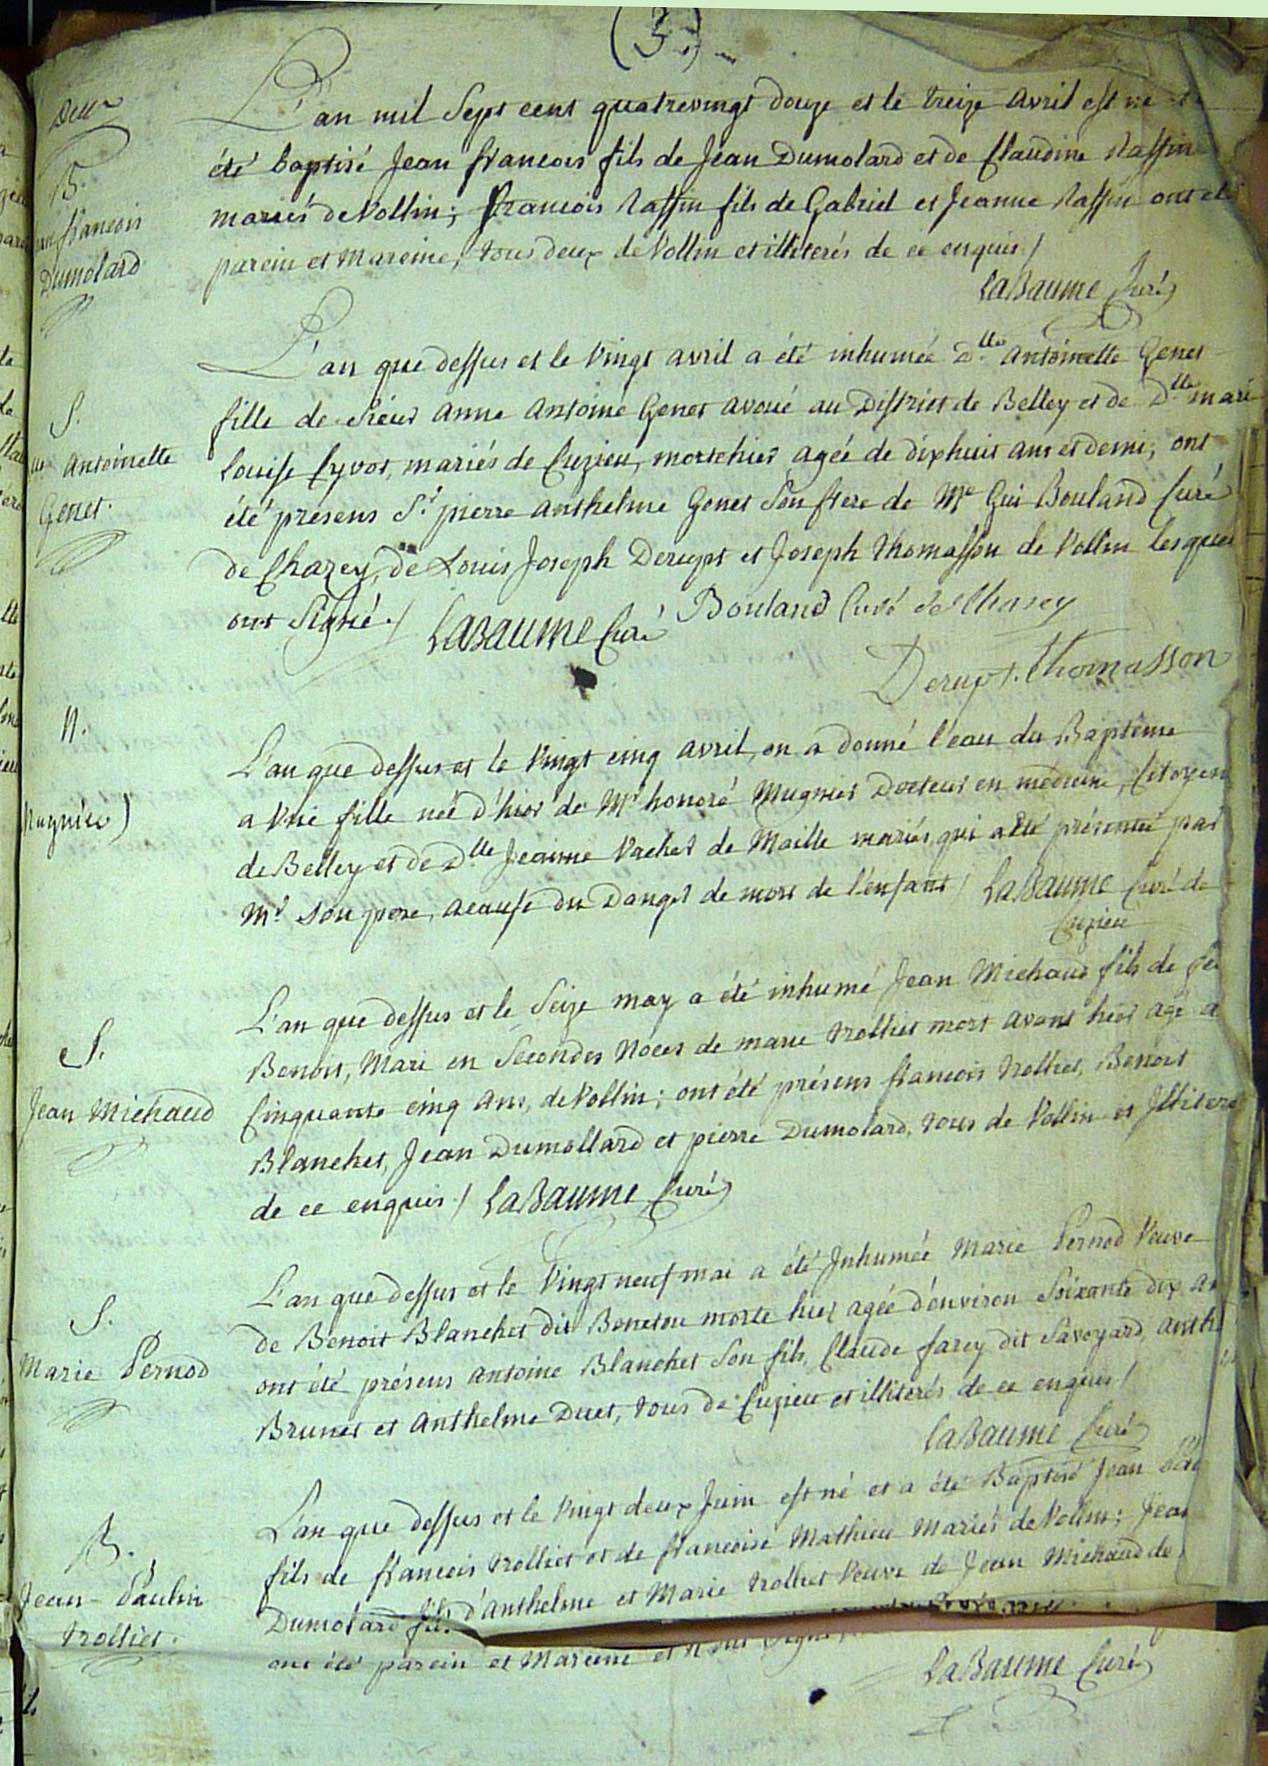 (3.)
Deux
B.
Jean francois
Dumolard
L'an mil sept cent quatrevingt douze et le treize avril est né et a
été baptisé Jean francois fils de Jean Dumolard et de Claudine Raffin
mariés de Vollin; francois Raffin fils de Gabriel et Jeanne Raffin ont été
parein et Mareine, tous deux de Vollin et illiterés de ce enquis /
LaBaume Curé
S.
Dlle Antoinette
Genet.
L'an que dessus et le vingt avril a été inhumée Dlle Antoinette Genet
fille de Sieur anne antoine Genet avoué au District de Belley et de Dlle marie
Louise Cyvot, mariés de Cuzieu, morte hier agée de dixhuit ans et demi; ont
été présens Sr pierre anthelme Genet son frere de Mre Gui Bouland Curé
de Chazey, de Louis Joseph Derupt et Joseph Thomasson de Vollin lesquels
ont signé. / LaBaume Curé Bouland Curé de Chasey
Derupt. Thomasson
N.
Mugnier)
L'an que dessus et le vingt cinq avril, on a donné l'eau du Baptême
a une fille née d'hier de Mr honoré Mugnier Docteur en médecine, Citoyen
de Belley et de Dlle Jeanne Vachet de Maille mariés, qui a été présentée par
Mr son pere, acause du danger de mort de l'enfant / LaBaume Curé de
Cuzieu
S.
Jean Michaud
L'an que dessus et le seize may a été inhumé Jean Michaud fils de feu
Benoit, Mari en secondes Noces de marie trolliet mort avant hier agé de
Cinquante cinq ans, de Vollin; ont été présens francois trolliet, Benoit
Blanchet, Jean Dumollard et pierre Dumolard, tous de Vollin et Illiterés
de ce enquis / LaBaume Curé
S.
Marie Pernod
L'an que dessus et le Vingt neuf mai a été Inhumée Marie Pernod Veuve
de Benoit Blanchet dit Beneton morte hier agée d'environ Soixante dix ans
ont été présens antoine Blanchet son fils, Claude farey dit Savoyard, anthelme
Brunet et anthelme Duet, tous de Cuzieu et illiterés de ce enquis /
LaBaume Curé
B.
Jean-Paulin
trolliet.
L'an que dessus et le vingt deux Juin est né et a été Baptisé Jean
fils de francois trolliet et de francoise Mathieu Mariés de Vollin; Jean
Dumolard fils d'anthelme et Marie trolliet Veuve de Jean Michaud de
ont été parein et Mareine et n'ont signé
LaBaume Curé